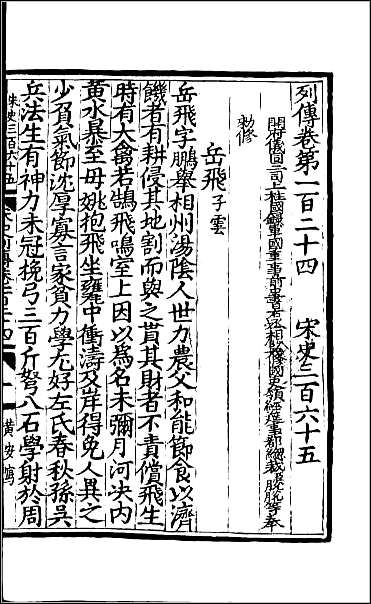 列傳卷第一百二十四　宋史三百六十五
開府儀同三司上柱國錄軍國重事前中書右丞相監修國史領經筵事都總裁臣脫脫等奉
勑修
岳飛子雲
岳飛字鵬舉相州湯陰人世力農父和能節食以濟
饑者有耕侵其地割而與之貰其財者不責償飛生
時有大禽若鵠飛鳴室上因以為名未彌月河決内
黄水暴至母姚抱飛坐甕中衝濤及岸得免人異之
少負氣節沈厚寡言家貧力學尤好左氏春秋孫吳
兵法生有神力未冠挽弓三百斤弩八石學射於周
宋史三百六十五
列傳卷一百二十四
一
黄安